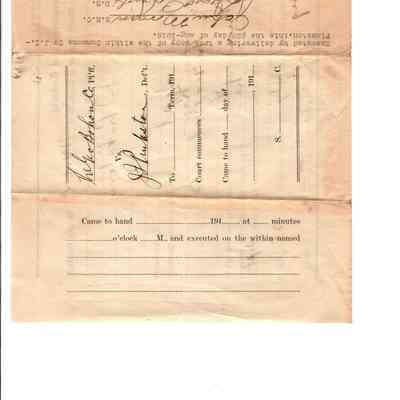 Executed by delivering a true copy of the within Summons to J.I.-
Pinkston.this.the day of Aug-1915.
S.H.C.
D.S.
McGeo Bohon Co Pl'ff.
Vs.
J I Pinkston, Def't.
To Term, 191
Court commences
Came to hand day of
191
S. C.
Came to hand 191 at minutes
o'clock M., and executed on the within-named